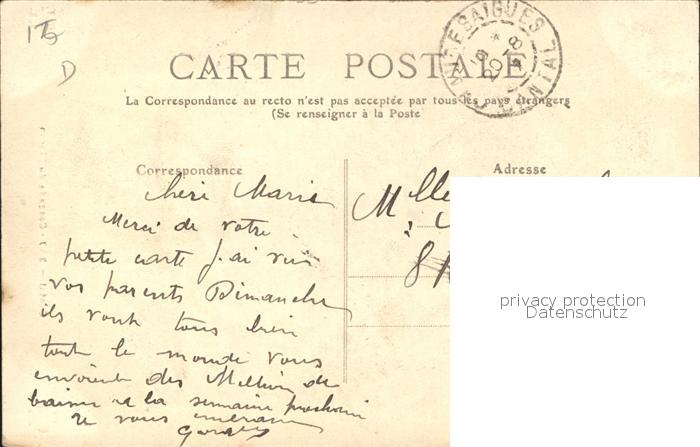 CHAUDESAIGUES CANTAL
D
CARTE POSTALE
La Correspondance au recto n'est pas acceptée par tous les pays étrangers
(Se renseigner à la Poste
Correspondance
Adresse
Chéri Marie
Merci de votre
petite carte J'ai vu
vos parents Dimanche
ils vont tous bien
tout le monde vous
envoient des Million de
baiser a la semaine prochain
Je vous
Mlle
privacy protection
Datenschutz